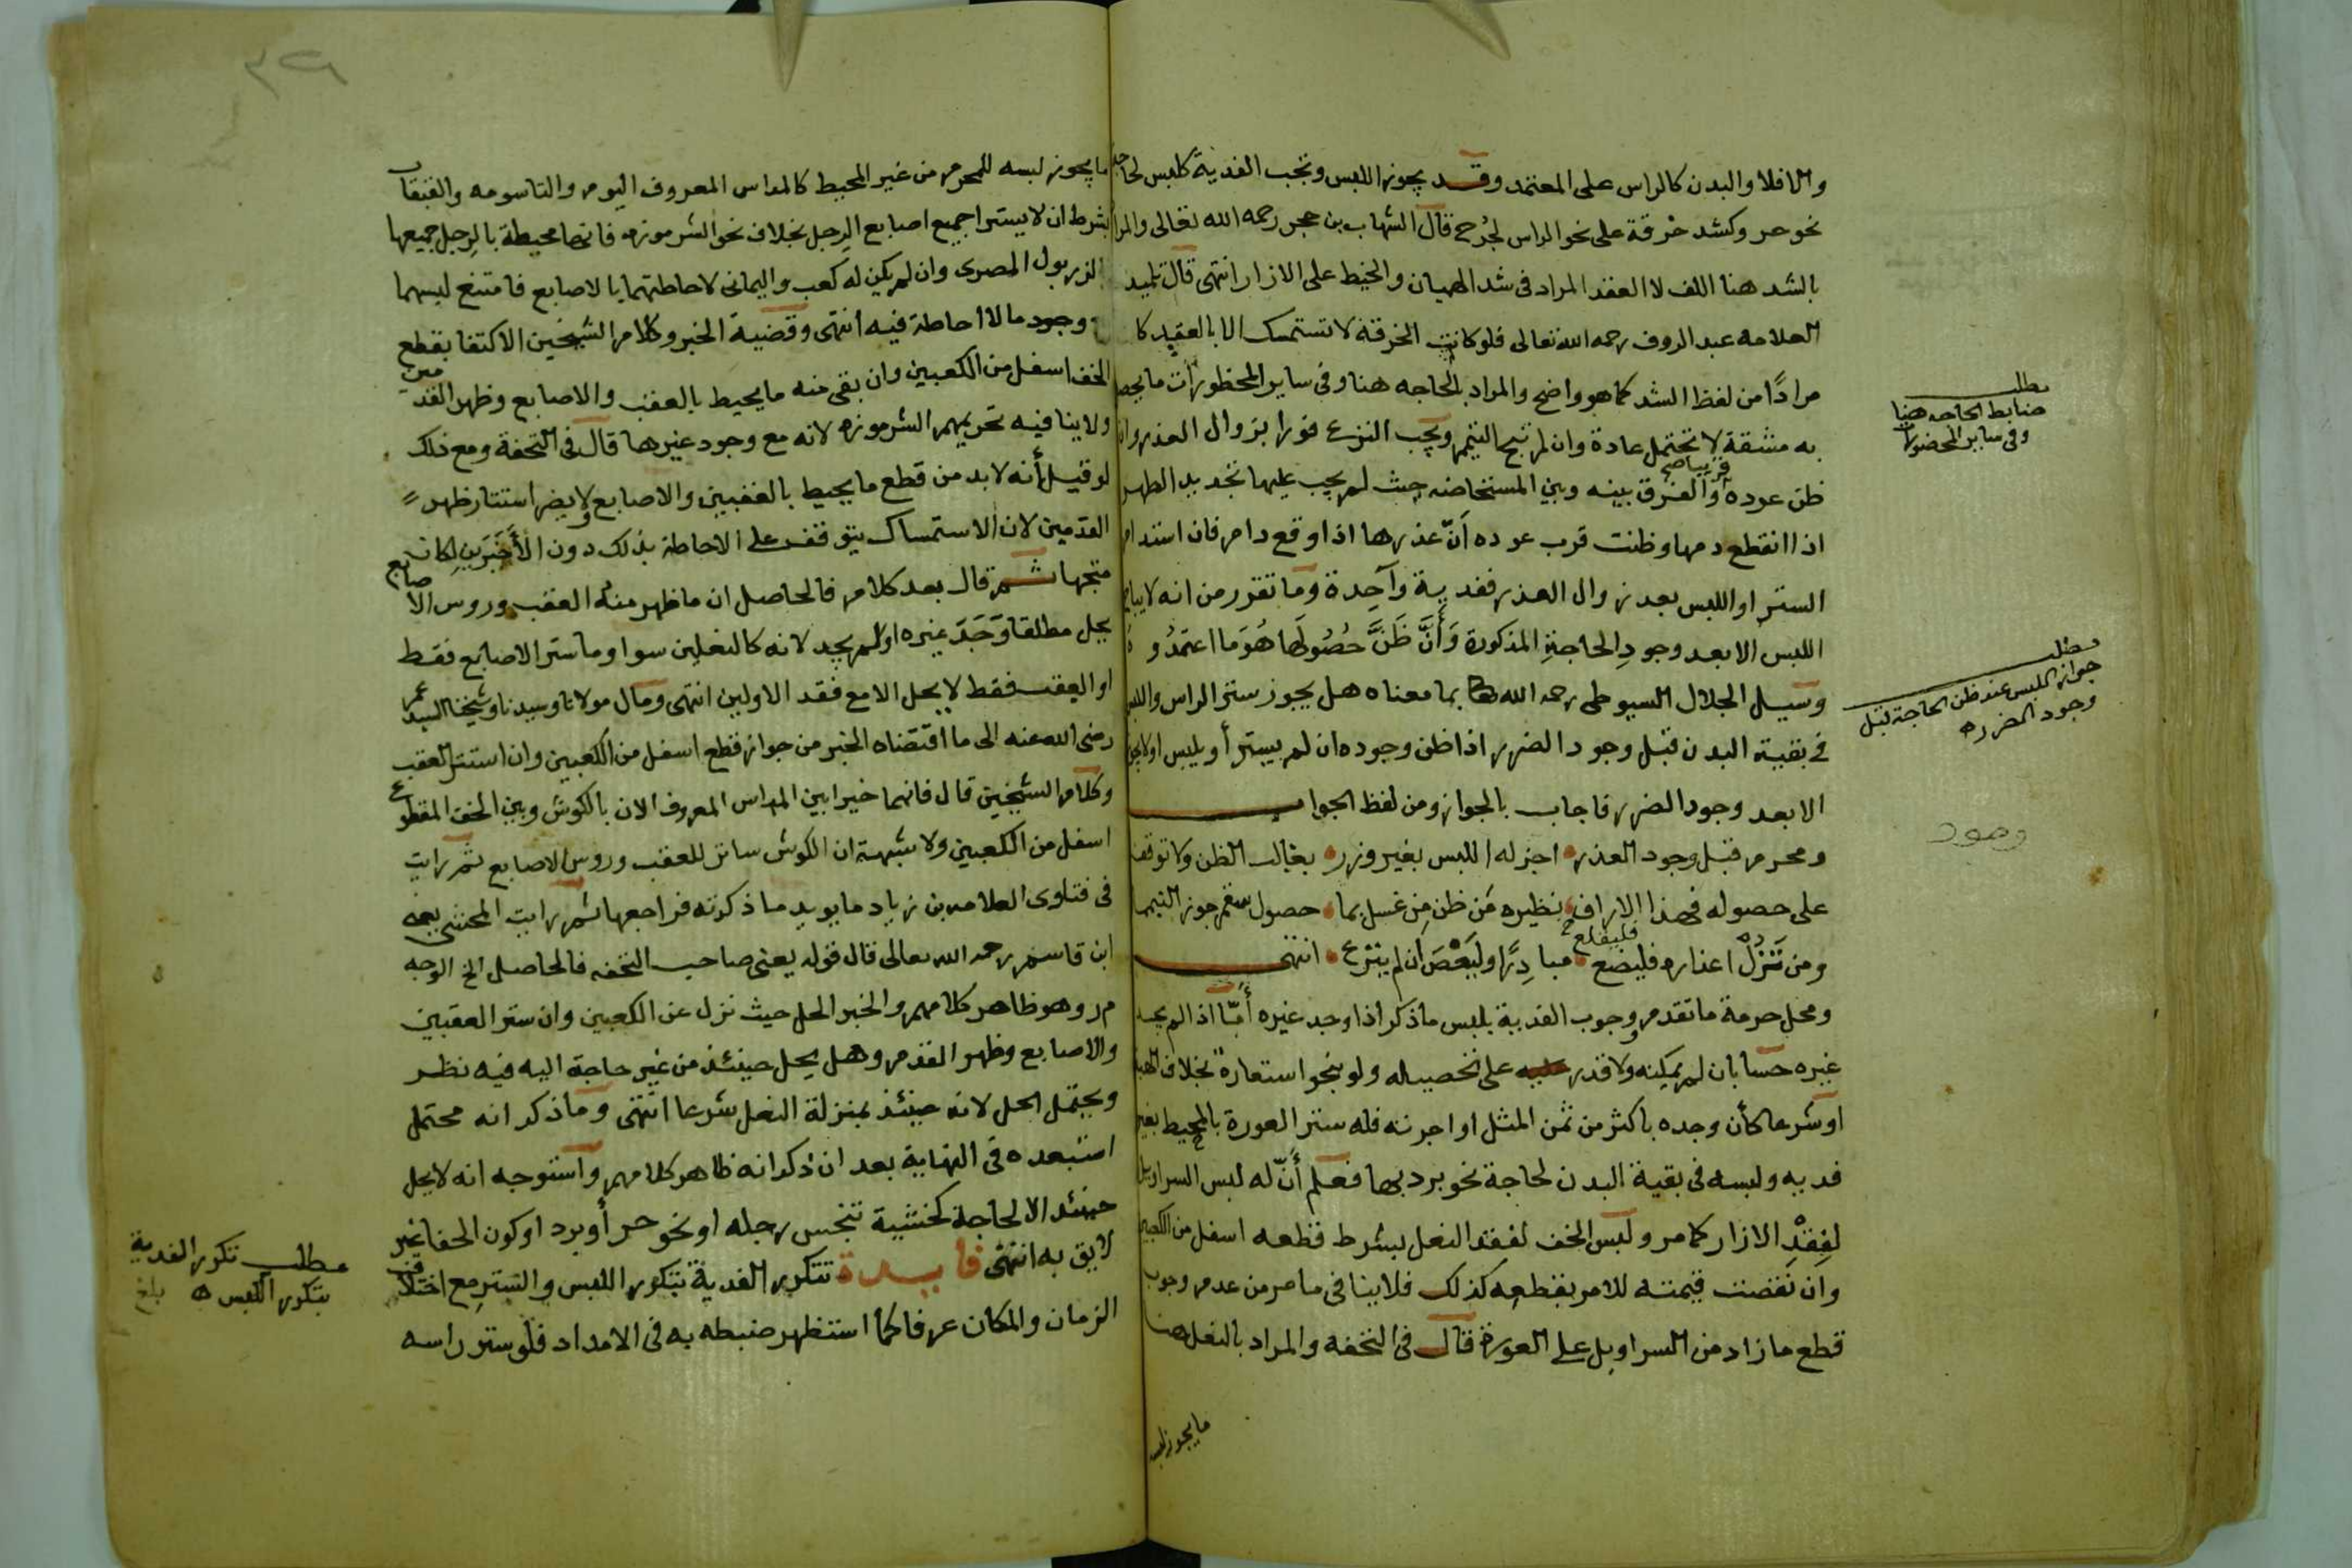 والا فلا والبدن كالراس على المعتمد وقد يجوز اللبس وتجب الفدية كلبس لحاجة
نحو حر وكشد خرقة على نحو الراس لجرح قال الشهاب بن حجر رحمه الله تعالى والمراد
بالشد هنا اللف لا العقد المراد فى شد الهميان والخيط على الازار انتهى قال تلميذ
العلامه عبد الروف رحمه الله تعالى فلو كانت الخرقة لا تستمسك الا بالعقد كا
مرادًا من لفظ الشد كما هو واضح والمراد بالحاجه هنا وفى ساير المحظورات ما يحصل
به مشقة لا تحتمل عادة وان لم تبح التيمم ويجب النزع فورا بزوال العذر وان
ظن عوده قريبا صح والفرق بينه وبين المستحاضه حيث لم يجب عليها تجديد الطهر
اذا انقطع دمها وظنت قرب عوده أنّ عذرها اذا وقع دام فان استدام
الستر او اللبس بعد زوال العذر ففدية واحدة وما تقرر من انه لا يباح
اللبس الا بعد وجودِ الحاجةِ المذكورة وَأَنَّ ظَنَّ حُصُولَها هُوَ مَا اعتمدُوه
وسيل الجلال السيوطى رحمه الله بما معناه هل يجوز ستر الراس واللبس
فى بقية البدن قبل وجود الضرر اذا ظن وجوده ان لم يستر أو يلبس اولا يجوز
الا بعد وجود الضرر فاجاب بالجواز ومن لفظ الجواب
ومحرم قبل وجود العذر اجز له اللبس بغير وزر بغالب الظن ولا توقفا
على حصوله فهذا الاراف نظيره مَن ظن مِن غسل بما حصول سقم جوز التيمما
ومن تَزُلْ اعذاره فليضع فليقلع خ مبادِرًا وليَعْصَ ان لم ينزع انتهى
ومحل حرمة ما تقدم ووجوب الفدية بلبس ما ذكر اذا وجد غيره أمّا اذا لم يجد
غيره حسا بان لم يمكنه ولا قدر على تحصيله ولو بنحو استعارة بخلاف الهبة
او شرعا كأن وجده باكثر من ثمن المثل او اجرته فله ستر العورة بالمحيط بغير
فديه ولبسه فى بقية البدن لحاجة نحو برد بها فعلم أنّ له لبس السراويل
لفقْدِ الازار كما مر ولبس الخف لفقد النعل بشرط قطعه اسفل من الكعبين
وان نقصت قيمته للامر بقطعه كذلك فلا ينا فى ما مر من عدم وجوب
قطع ما زاد من السراويل على العورة قال فى التحفه والمراد بالنعل هنا
ما يجوز لبسه
مطلب
ضابط الحاجه هنا
وفى ساير المحضورات
مطلب
جواز اللبس عند ظن الحاجة قبل
وجود الضرر ه
وجود
٣٩
ما يجوز لبسه للمحرم من غير المحيط كالمداس المعروف اليوم والتاسومه والقبقاب
بشرط ان لا يستر اجميع اصابع الرجل بخلاف نحو الشرموزه فانها محيطة بالرجل جميعها
الزربول المصرى وان لم يكن له كعب واليمانى لاحاطتهما بالاصابع فامتنع لبسهما
وجود ما لا احاطة فيه انتهى وقضية الخبر وكلام الشيخين الاكتفا بقطع
الخف اسفل من الكعبين وان بقى منه ما يحيط بالعقب والاصابع وظهر القدمين
ولا ينا فيه تحريمهم الشرموزه لانه مع وجود غيرها قال فى التحفة ومع ذلك
لو قيل أنه لا بد من قطع ما يحيط بالعقبين والاصابع ولا يضر استتار ظهر
القدمين لان الاستمساك يتوقف على الاحاطة بذلك دون الأخيرين لكان
متجها ثم قال بعد كلام فالحاصل ان ما ظهر منه العقب وروس الاصابع
يحل مطلقا وَجَدَ غيره اولم يجد لانه كالنعلين سوا وما ستر الاصابع فقط
او العقب فقط لا يحل الا مع فقد الاولين انتهى ومال مولانا وسيدنا وشيخنا السيد عمر
رضى الله عنه الى ما اقتضاه الخبر من جواز قطع اسفل من الكعبين وان استتر العقب
وكلام الشيخين قال فانهما خيرا بين المداس المعروف الان بالكوش وبين الخف المقطوع
اسفل من الكعبين ولا شبهة ان الكوش ساتر للعقب وروس الاصابع ثم رايت
فى فتاوى العلامه بن زياد ما يويد ما ذكرته فراجعها ثم رايت المحشى يعنى
ابن قاسم رحمه الله تعالى قال قوله يعنى صاحب التحفه فالحاصل الخ الوجه
م ر وهو ظاهر كلامهم والخبر الحل حيث نزل عن الكعبين وان ستر العقبين
والاصابع وظهر القدم وهل يحل حينئذ من غير حاجة اليه فيه نظر
ويحتمل الحل لانه حينئذ بمنزلة النعل شرعا انتهى وما ذكر انه محتمل
استبعده فى النهاية بعد ان ذكر انه ظاهر كلامهم واستوجه انه لا يحل
حينئذ الا لحاجة كخشية تنجس رجله او نحو حر أو برد او كون الحفا غير
لايق به انتهى فايـدة تتكرر الفدية بتكرر اللبس والستر مع اختلاف
الزمان والمكان عرفا كما استظهر ضبطه به فى الامداد فلو ستر راسه
مطلب تكرر الفدية
بتكرر اللبس ه بلغ